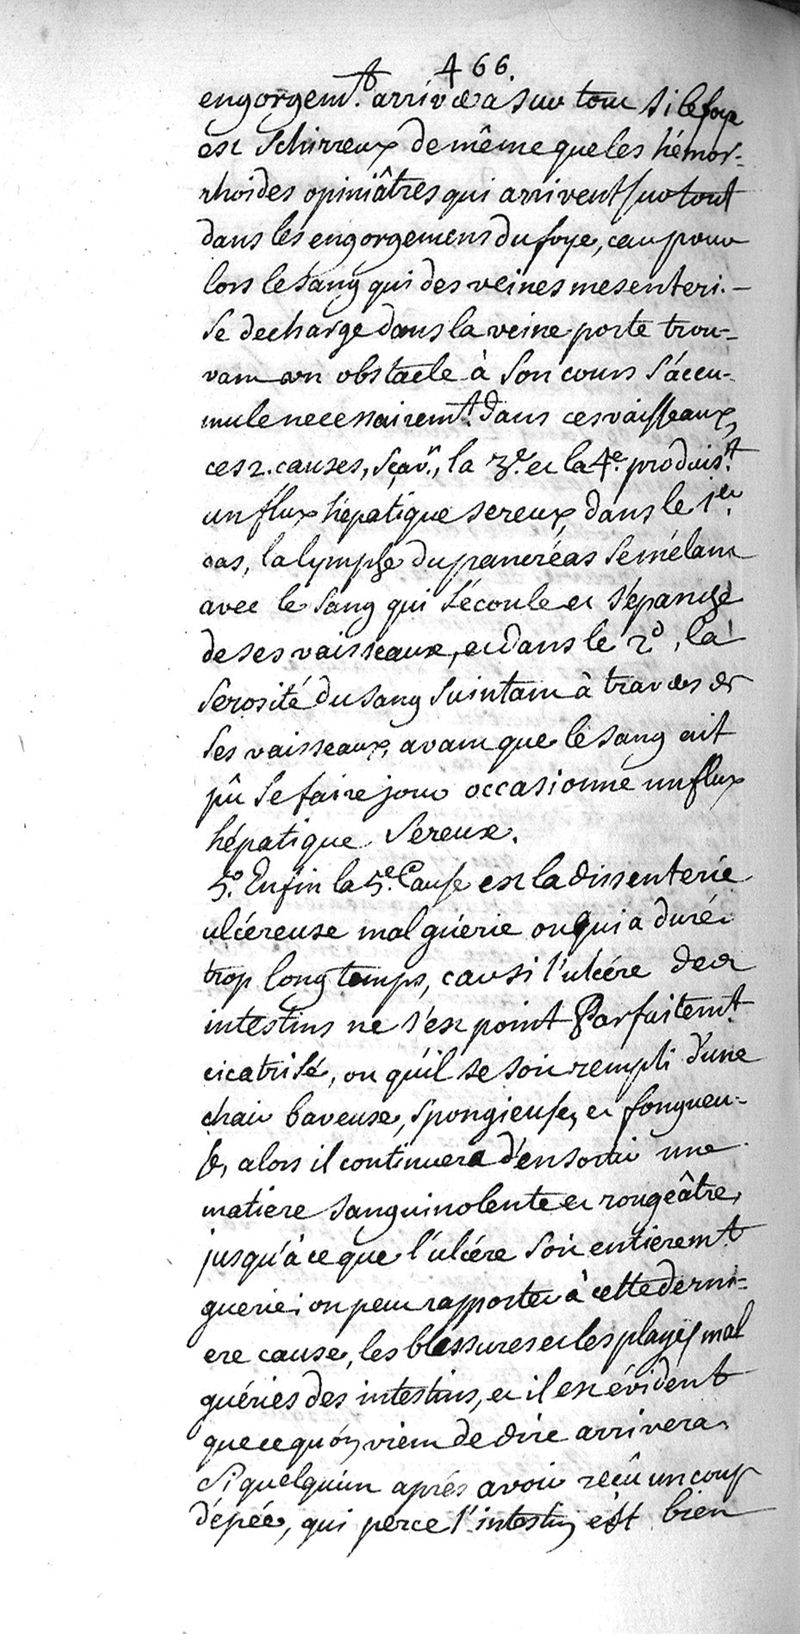 466.
engorgemt. arrivera sur tout si le foye
est schirreux de même que les hémor-
rhoides opiniâtres qui arrivent sur tout
dans les engorgemens du foye, car pour
lors le sang qui des veines mesenteri.-
se decharge dans la veine porte trou-
vant un obstacle à son cours s'accu-
mule necessairemt. dans ces vaisseaux,
ces 2. causes, sçavr., la 3e. et la 4e. produist.
un flux hépatique sereux, dans le 1er.
cas, la lymphe du pancréas se mélant
avec le sang qui s'écoule et s'épanche
de ses vaisseaux, et dans le 2d, la
serosité du sang suintant à travers de
ses vaisseaux, avant que le sang ait
pû se faire jour occasionne un flux
hépatique sereux.
5o. Enfin la 5e. Cause est la dissenterie
ulcéreuse mal guérie ou qui a duré
trop long temps, car si l'ulcére des
intestins ne s'est point Parfaitemt.
cicatrisé, ou qu'il se soit rempli d'une
chair baveuse, spongieuse, et fongueu-
se, alors il continuera d'en sortir une
matiere sanguinolente et rougeâtre,
jusqu'à ce que l'ulcére soit entieremt.
guerie; on peut rapporter à cette derni-
ere cause, les blessures et les playes mal
guéries des intestins, et il est évident
que ce qu'on vient de dire arrivera
si quelqu'un aprés avoir reçû un coup
d'épée, qui perce l'intestin est bien